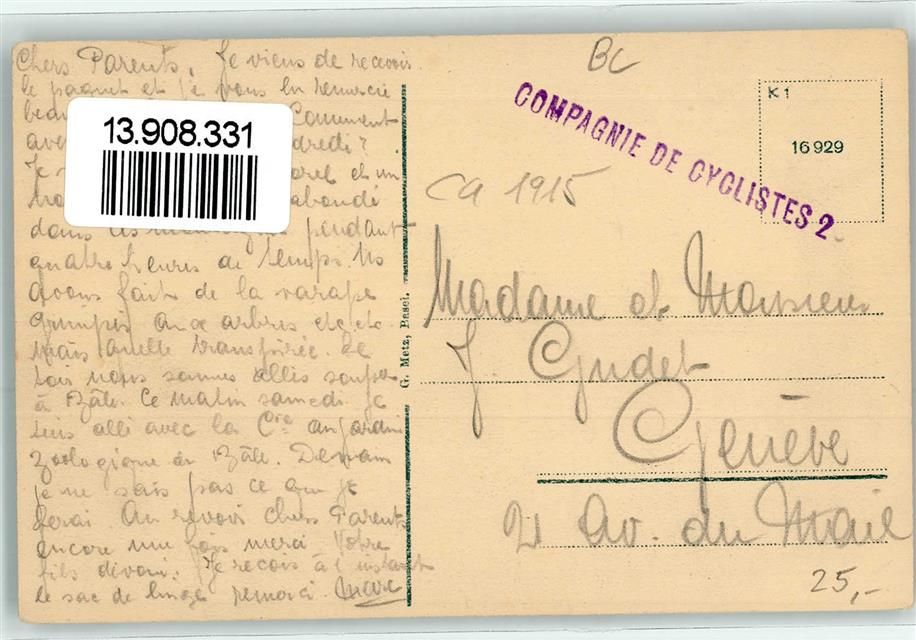 Chers Parents, Je viens de recevoir
le paquet et je vous en remercie
Comment
dredi?
Je et un
dans les pendant
quatre heures de temps. Ns
avons fait de la varape
grimpés aux arbres etc etc
Mais quelle transpirée. Le
soir nous sommes allés souper
à Bâle. Ce matin samedi je
suis allé avec la Cie au jardin
Zoologique de Bâle. Demain
je ne sais pas ce que je
ferai. Au revoir chers Parents
encore une fois merci. Votre
fils dévoué. Je reçois à l'instant
le sac de linge remerci. Marc
13.908.331
G. Metz, Basel.
BC
COMPAGNIE DE CYCLISTES 2
K 1
16 929
ca 1915
Madame et Monsieur
J. Gudet
Genève
21 Av. du Mail
25,-